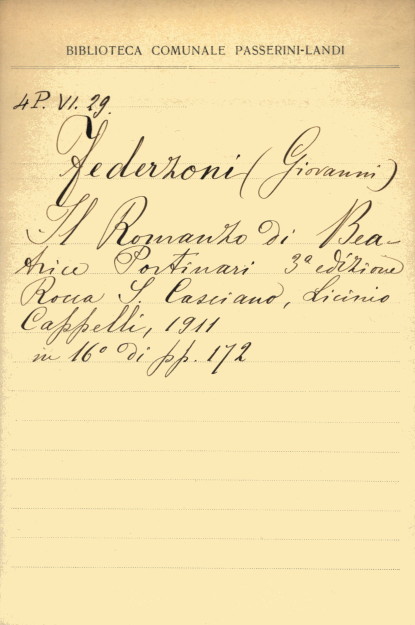 BIBLIOTECA COMUNALE PASSERINI-LANDI
4P. VI. 29.
Federzoni (Giovanni)
Il Romanzo di Bea-
trice Portinari 3ª edizione
Rocca S. Casciano, Licinio
Cappelli, 1911
in 16° di pp. 172